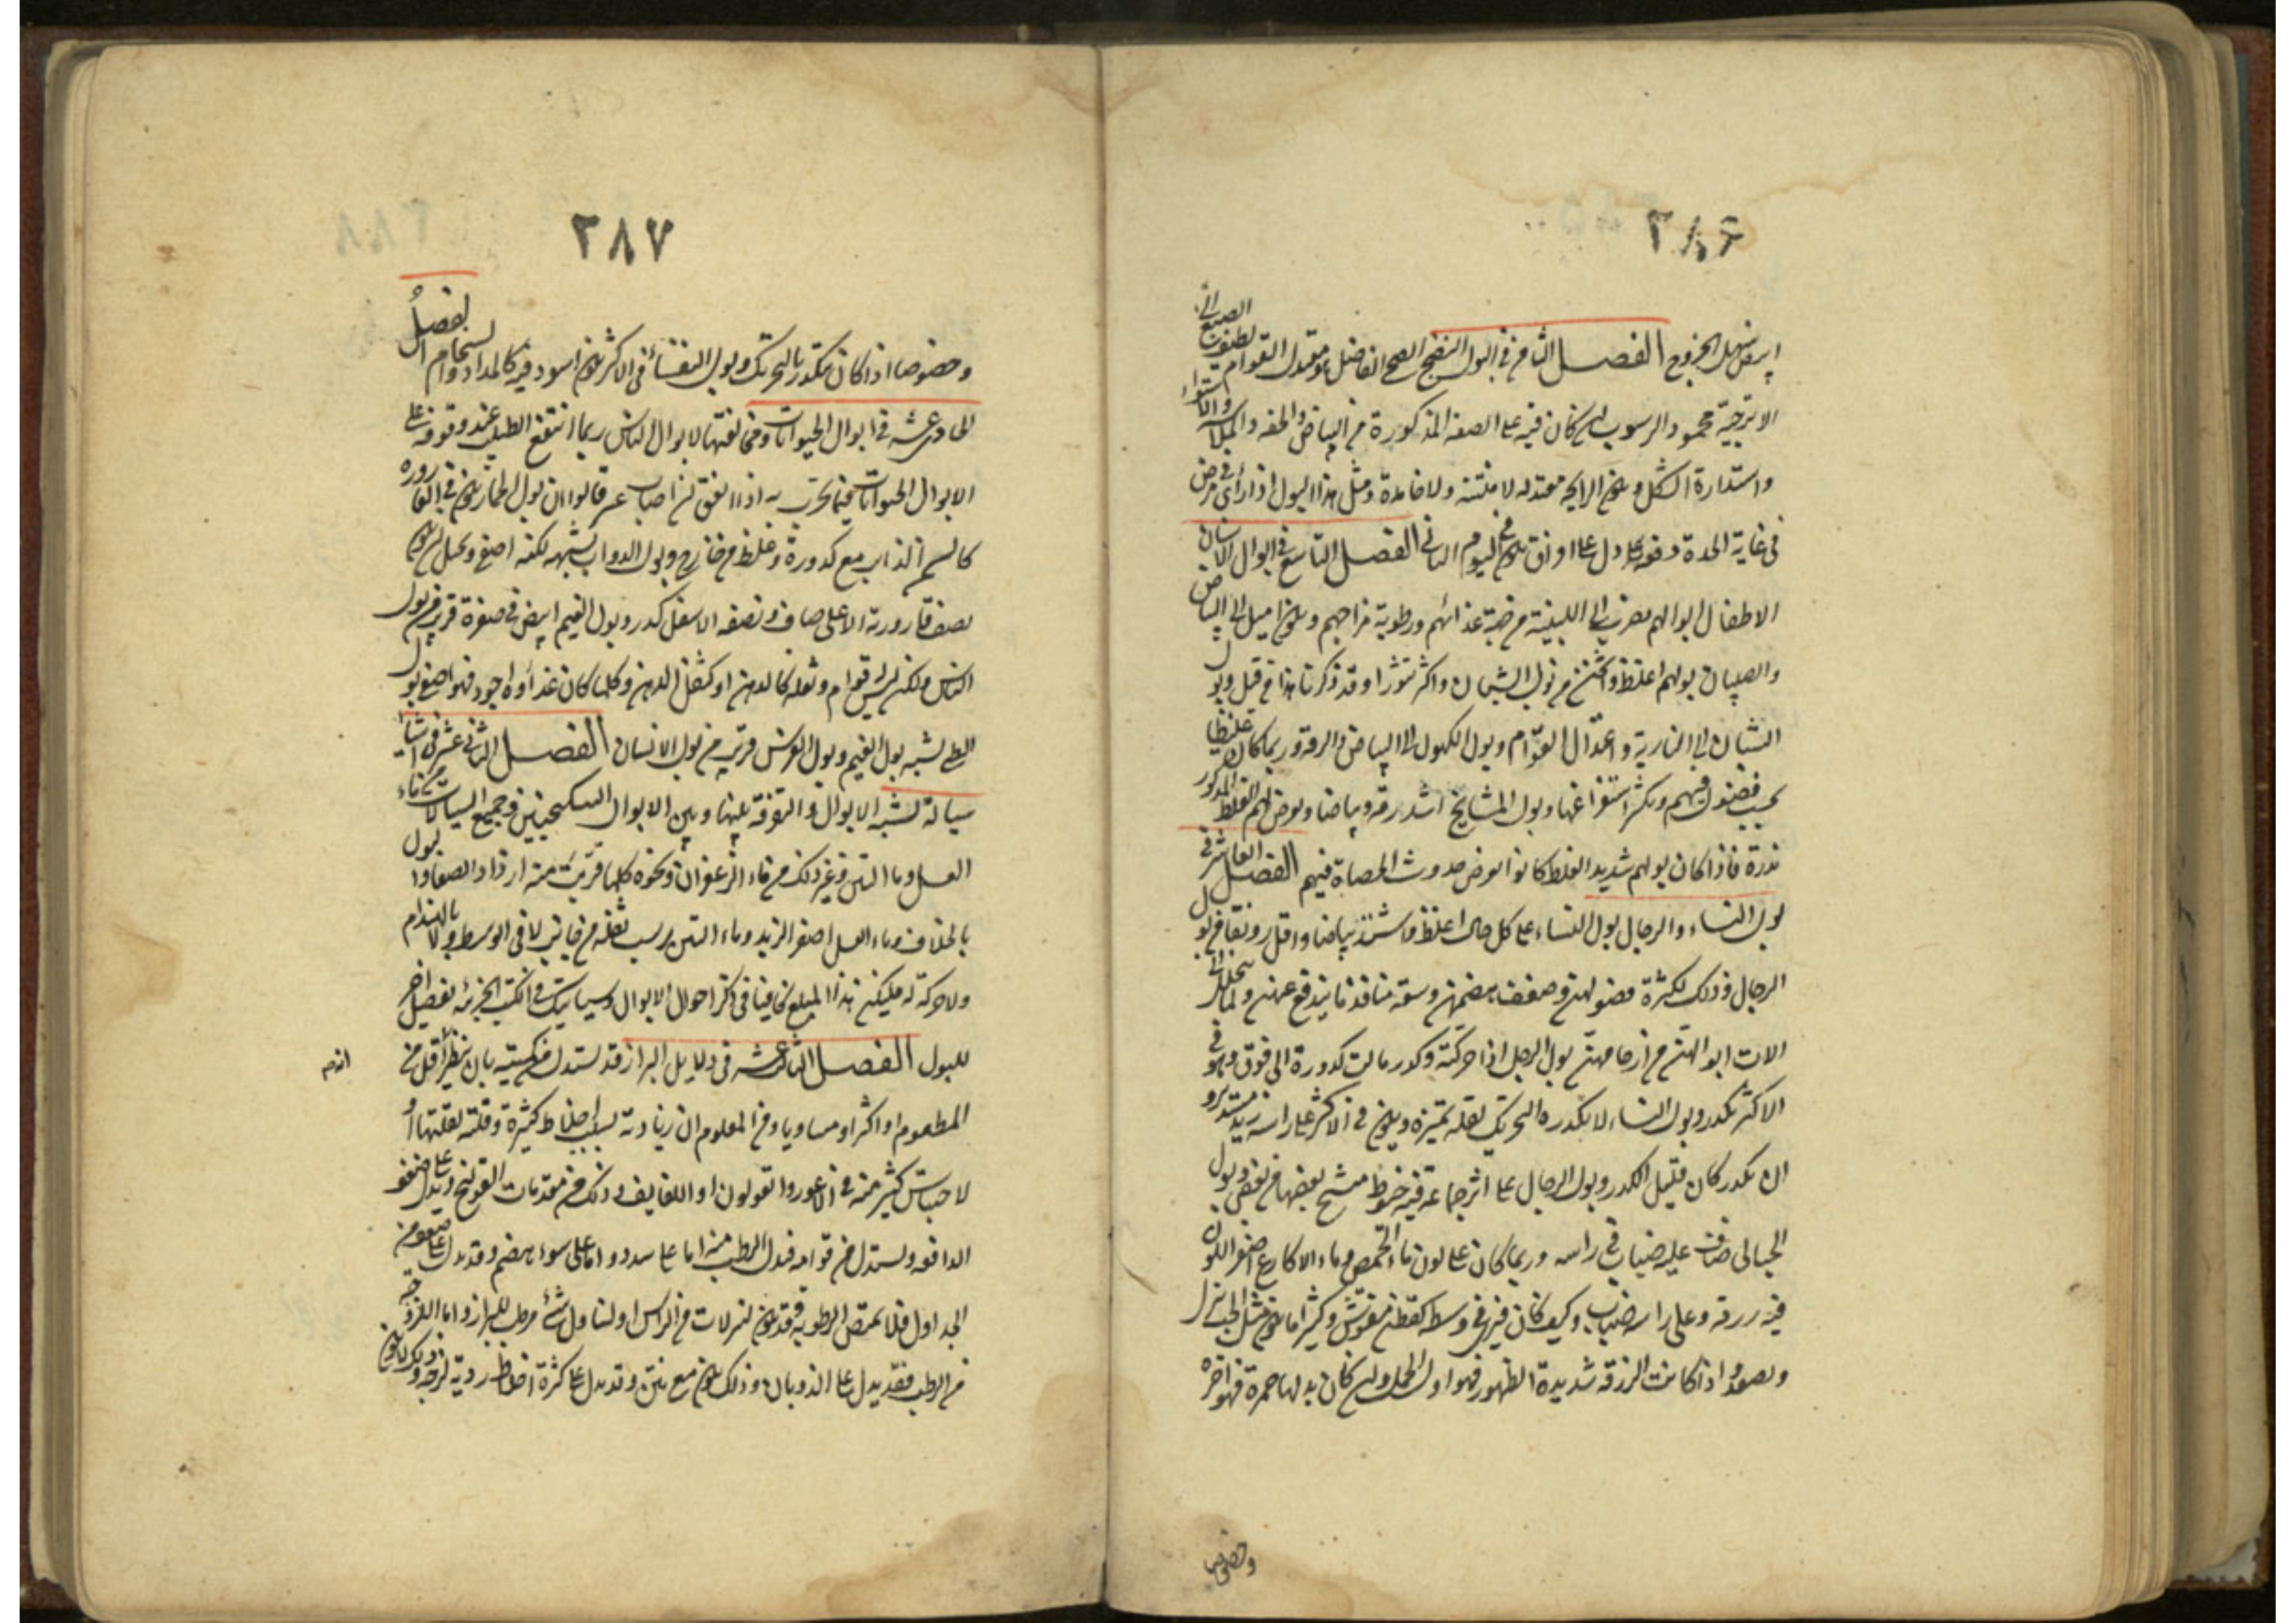 ٢٨٦
ابيض سهل الخروج الفصل الثامن في البول النضيج الصحي الفاضل هو معتدل القوام لطيف الصبغ الى
الاترجية محمود الرسوب ان كان فيه على الصفة المذكورة من البياض والخفة والملاسة والاستواء
واستدارة الشكل ويكون الرايحة معتدلة لا منتنة ولا خامدة ومثل هذا البول اذا رأى في مرض
في غاية الحدة دفعة دل على افراق يكون في اليوم الثاني الفصل التاسع في ابوال الاسنان
الاطفال ابوالهم يضرب الى اللبنية من جهة غذائهم ورطوبة مزاجهم ويكون اميل الى البياض
والصبيان بولهم اغلظ واثخن من بول الشبان واكثر تثورا وقد ذكرنا هذا من قبل وبول
الشبان الى النارية واعتدال القوام وبول الكهول الى البياض والرقة وربما كان غليظا
بحسب فضول فيهم ويكثر استفراغها وبول المشايخ اشد رقة وبياضا ويعرض لهم الغلظ المذكور
ندرة فاذا كان بولهم شديد الغلظ كانوا بعرض حدوث الحصاة فيهم الفصل العاشر في
بول النساء والرجال بول النساء على كل حال اغلظ واشد بياضا واقل رونقا من بول
الرجال وذلك لكثرة فضولهن وضعف هضمهن وسعة منافذ ما يندفع عنهن ولما يتحلل الى
الات ابوالهن من ارحامهن بول الرجل اذا حركته وكدر مالت كدورة الى فوق وهو في
الاكثر يكدر وبول النساء لا يكدره التحريك لقلة تميزه ويكون في الاكثر على راسه زبد مستدير و
ان يكدر كان قليل الكدر وبول الرجال على اثر جماعه فيه خيوط منتسج بعضها في بعض وبول
الحبالى صاف عليه ضباب في راسه وربما كان على لون ماء الحمص وماء الاكارع اصفر اللون
فيه زرقة وعلى راسه ضباب وكيف كان فيرى في وسطه كقطن منفوش وكثيرا ما يكون مثل الحب ينزل
ويصعد واذا كانت الزرقة شديدة الظهور فهو اول الحمل وان كان بدلها حمرة فهو اخره
وخصوصا
٢٨٧
وخصوصا اذا كان يتكدر بالتحريك وبول النفساء في الاكثر يكون اسود فيه كالمداد والسخام الفصل
الحادي عشر في ابوال الحيوانات ومخالفتها لابوال الناس ربما انتفع الطبيب عند وقوفه على
الابوال الحيوانات فيما يجرب به اذا اتفق ان اصاب عسر قالوا ان بول الحمار يكون في القارورة
كالسمن الذايب مع كدورة وغلظ من خارج وبول الدواب يشبهه لكنه اصفى ويخيل ان يكون
نصف قارورته الاعلى صاف ونصفه الاسفل كدر وبول الغنم ابيض في صفرة قريب من بول
الناس ولكن ليس له قوام وثفله كالدهن او كثفل الدهن وكلما كان غذاؤه اجود فهو اصفى وبول
الظبي يشبه بول الغنم وبول الفرس قريب من بول الانسان الفصل الثاني عشر في اشياء
سيالة تشبه الابوال والتفرقة بينها وبين الابوال السكنجبين وجميع السيالات من ماء
العسل وماء التين وغير ذلك من ماء الزعفران ونحوه كلما قربت منه ازداد الصفا والبول
بالخلاف وماء العسل اصفر الزبد وماء التين يرسب ثفله من جانب لا في الوسط ولا بالهندام
ولا حركة له فليكن هذا المبلغ كافيا في ذكر احوال الابوال وسيأتيك في الكتب الجزئية تفصيل اخر
للبول الفصل الثالث عشر في دلايل البراز قد يستدل من كميته بان ينظر اقل من
المطعوم او اكثر او مساويا ومن المعلوم ان زيادته بسبب اخلاط كثيرة وقلته لقلتها او
لاحتباس كثير منه في الاعور والقولون او اللفايف وذلك من مقدمات القولنج ويدل على ضعف
الدافعة ويستدل من قوامه فيدل الرطب منه اما على سدد واما على سوء هضم وقد يدل على ضعف من
الجداول فلا تمتص الرطوبة وقد يكون لنزلات من الراس او لتناول شيء مرطب للبراز واما اللزوجة
من الرطب فقد يدل على الذوبان وذلك يكون مع نتن وقد يدل على كثرة اخلاط ردية لزجة وذلك لا يكون